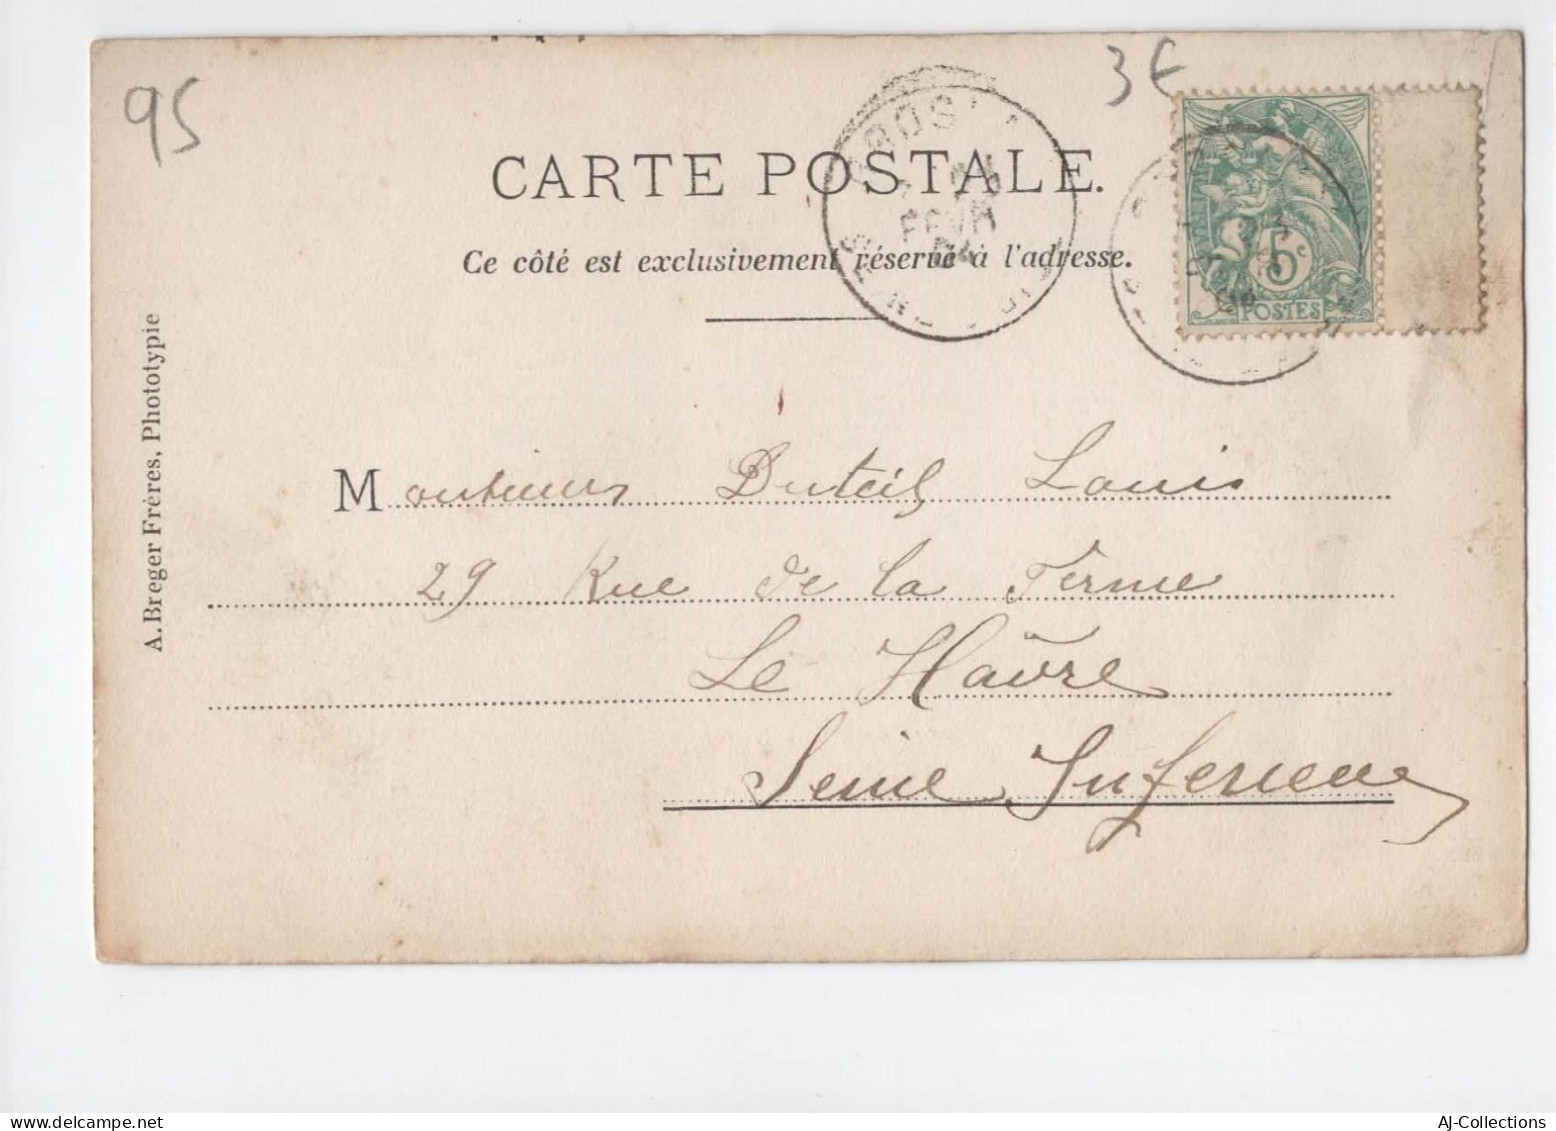 95
3€
CARTE POSTALE.
Ce côté est exclusivement réservé à l'adresse.
FEVR
5c
POSTES
A. Breger Frères, Phototypie
Monsieur Duteil Louis
29 Rue de la Ferme
Le Hâvre
Seine Inferieure
AJ-Collections